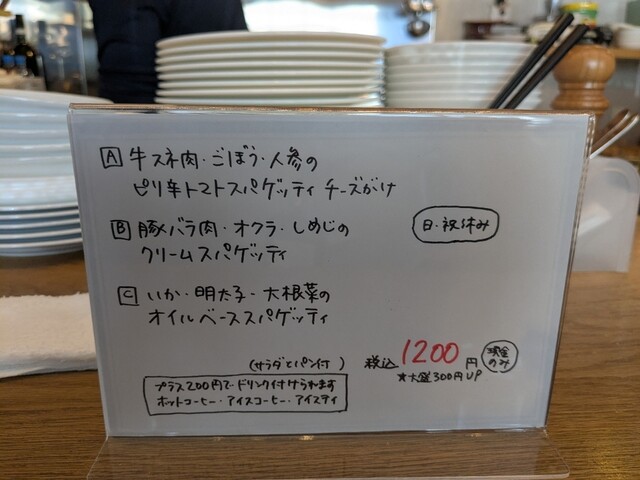 A 牛スネ肉・ごぼう・人参の
ピリ辛トマトスパゲッティ チーズがけ
B 豚バラ肉・オクラ・しめじの
クリームスパゲッティ
日・祝休み
C いか・明太子・大根菜の
オイルベーススパゲッティ
(サラダとパン付)
税込 1200円 現金のみ
★大盛300円UP
プラス200円で ドリンク付けられます
ホットコーヒー・アイスコーヒー・アイスティ